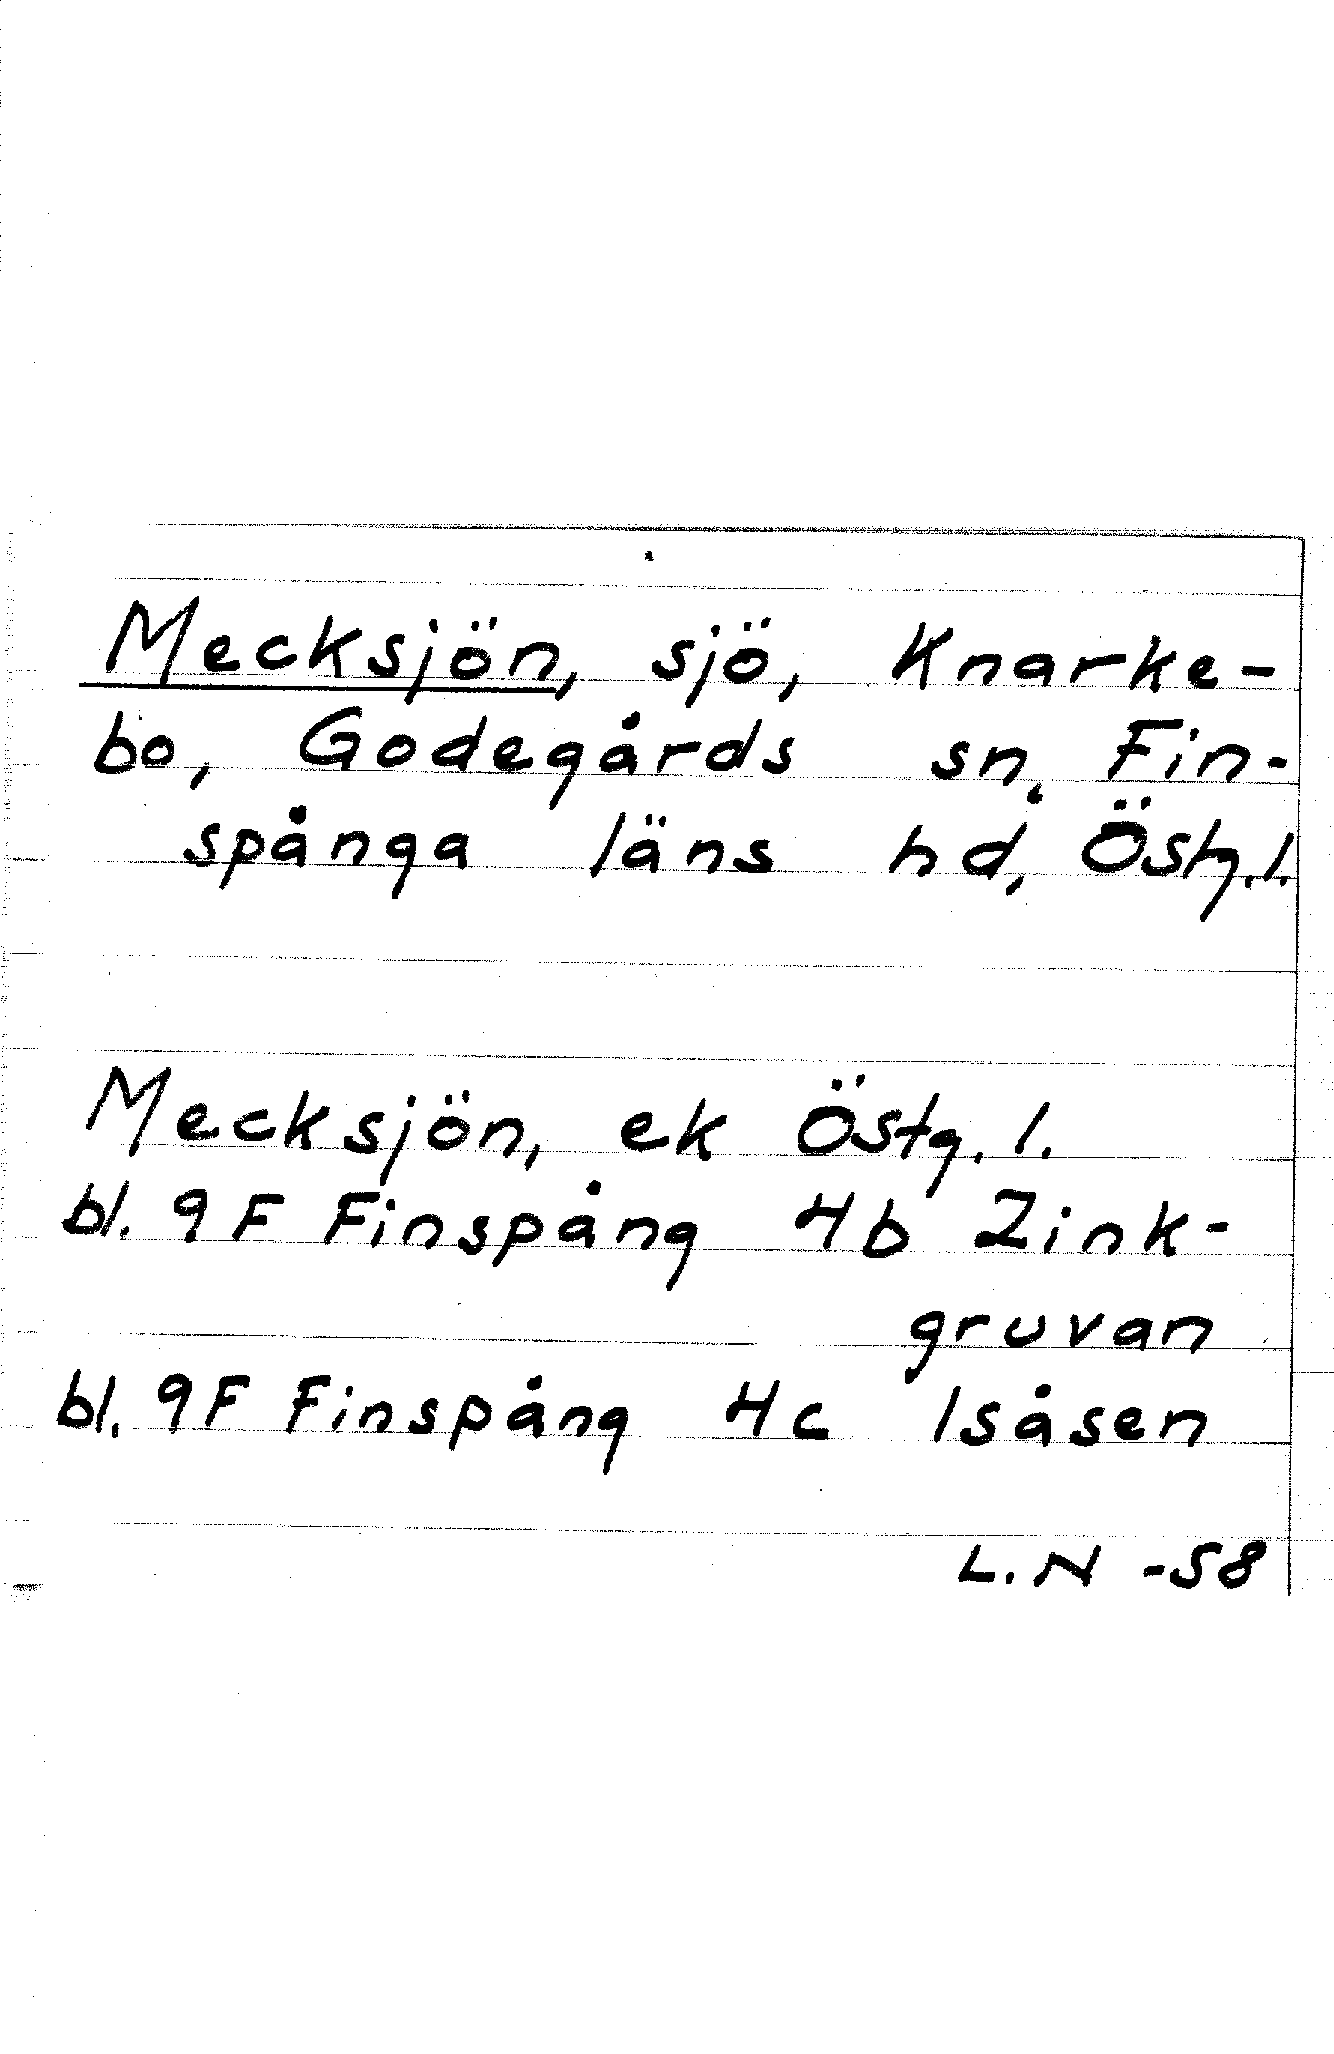 Mecksjön, sjö, Knarke-
bo, Godegårds sn, Fin-
spånga läns hd, Östg.l.
Mecksjön, ek Östg. l.
bl. 9F Finspång 4b Zink-
gruvan
bl. 9F Finspång 4c Isåsen
L.N -58